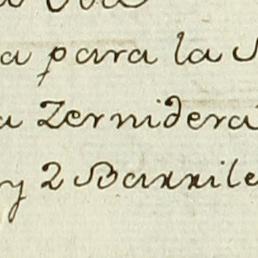 a para la
Zernidera
y 2 Barrile